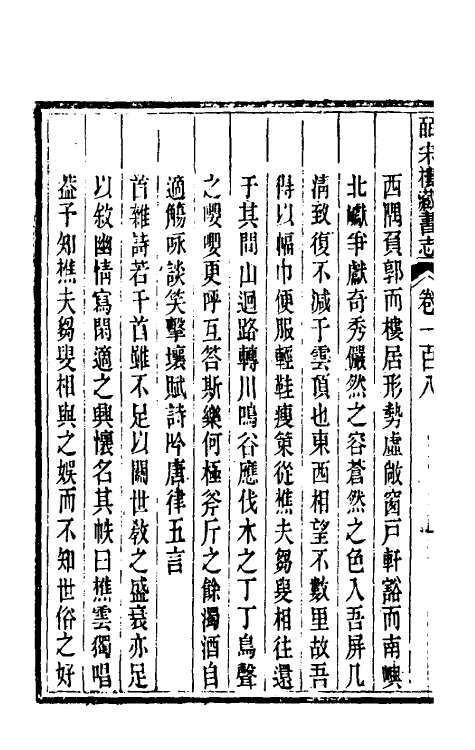 皕宋樓藏書志 卷一百八
西隅負郭而樓居形勢虛敞窗戸軒豁而南嶼
北巘爭獻奇秀儼然之容蒼然之色入吾屏几
清致復不减于雲頂也東西相望不數里故吾
得以幅巾便服輕鞋瘦策從樵夫芻叟相往還
于其間山迴路轉川鳴谷應伐木之丁丁鳥聲
之嚶嚶更呼互答斯樂何極斧斤之餘濁酒自
適觴咏談笑擊壤賦詩吟唐律五言
首雜詩若干首雖不足以關世敎之盛衰亦足
以敘幽情寫閑適之興懷名其帙曰樵雲獨唱
益予知樵夫芻叟相與之娛而不知世俗之好